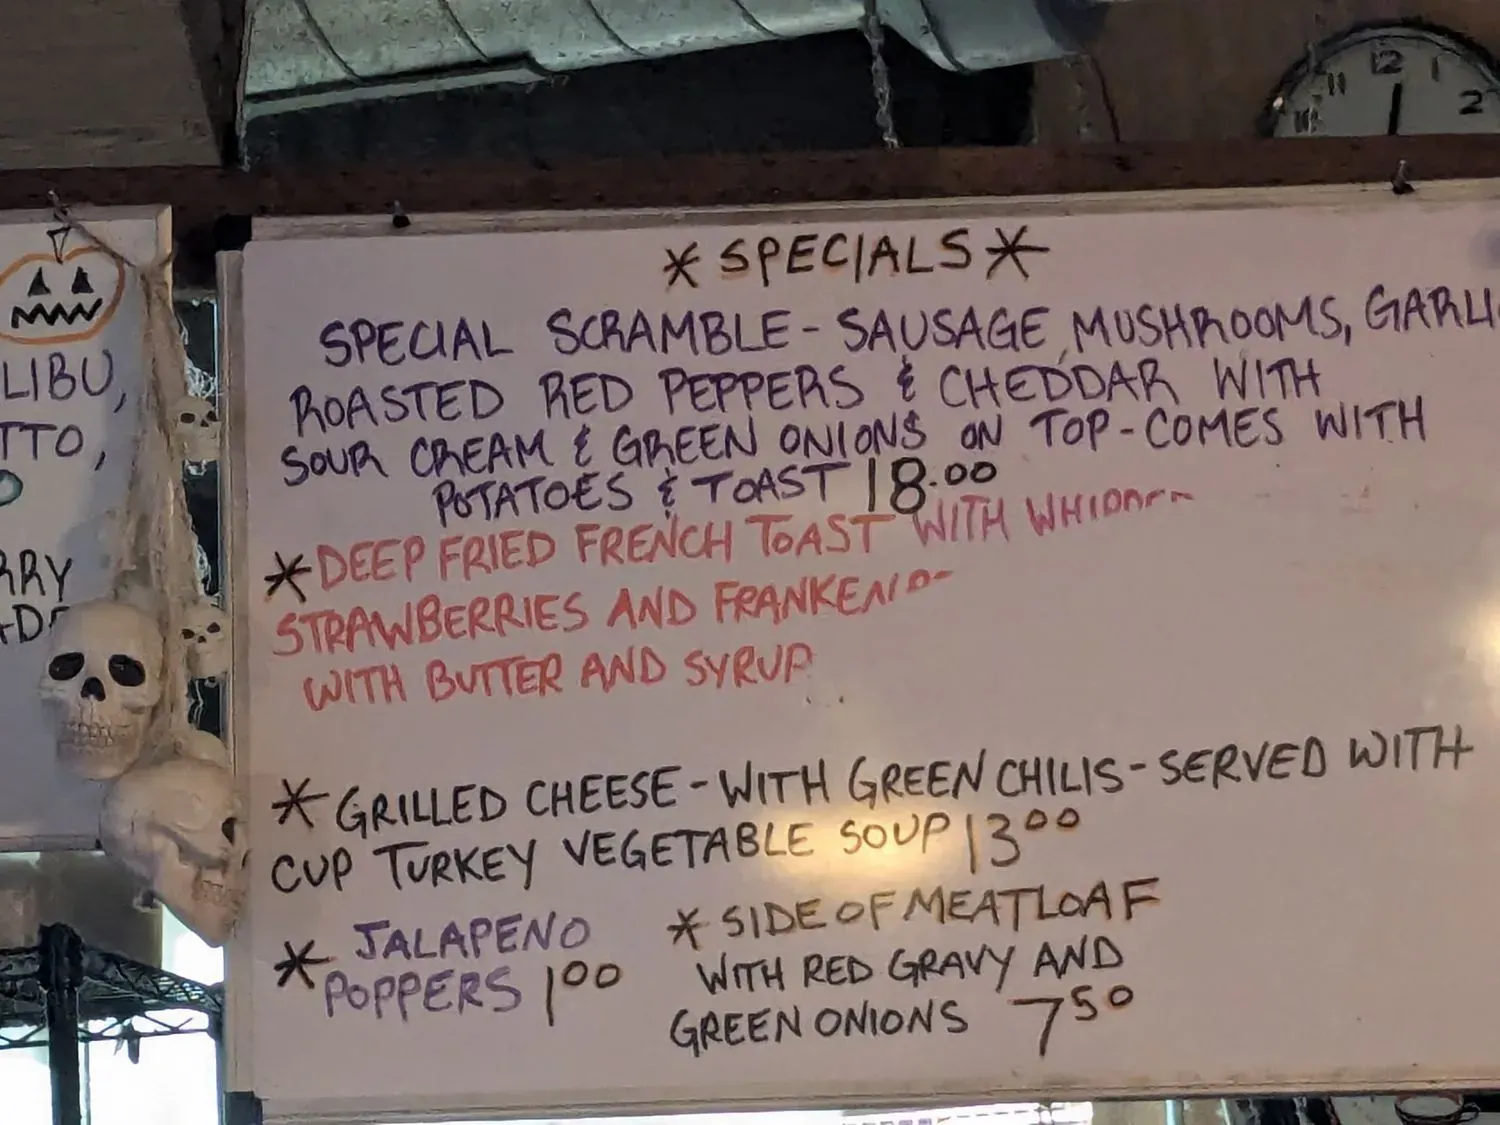 12
11
1
2
LIBU,
TTO,
RRY
*SPECIALS*
SPECIAL SCRAMBLE - SAUSAGE, MUSHROOMS, GARLI
ROASTED RED PEPPERS & CHEDDAR WITH
SOUR CREAM & GREEN ONIONS ON TOP - COMES WITH
POTATOES & TOAST 18.00
*DEEP FRIED FRENCH TOAST WITH
STRAWBERRIES AND
WITH BUTTER AND SYRUP
*GRILLED CHEESE - WITH GREEN CHILIS - SERVED WITH
CUP TURKEY VEGETABLE SOUP 13 00
* JALAPENO
POPPERS 1 00
* SIDE OF MEATLOAF
WITH RED GRAVY AND
GREEN ONIONS 7 50